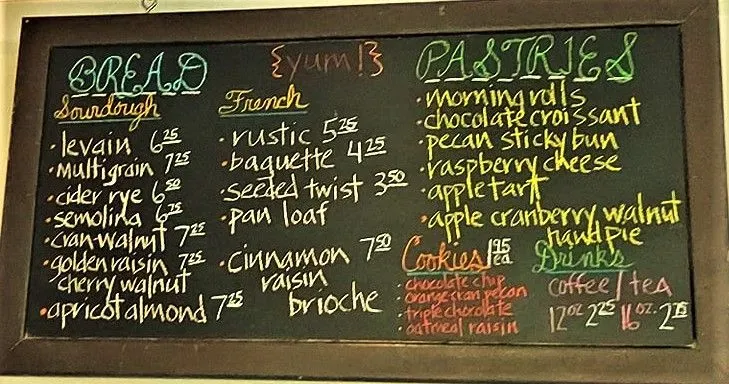 BREAD
Sourdough
· levain 6 25
· multigrain 7 25
· cider rye 6 50
· semolina 6 75
· cran-walnut 7 25
· golden raisin 7 25
cherry walnut
· apricot almond 7 25
{yum!}
French
· rustic 5 25
· baguette 4 25
· seeded twist 3 50
· pan loaf
· cinnamon 7 50
raisin
brioche
PASTRIES
· morning rolls
· chocolate croissant
· pecan sticky bun
· raspberry cheese
· apple tart
· apple cranberry walnut
hand pie
Cookies 1 95 ea
· chocolate chip
· orange cran pecan
· triple chocolate
· oatmeal raisin
Drinks
coffee / tea
12 oz 2 25 16 oz. 2 75